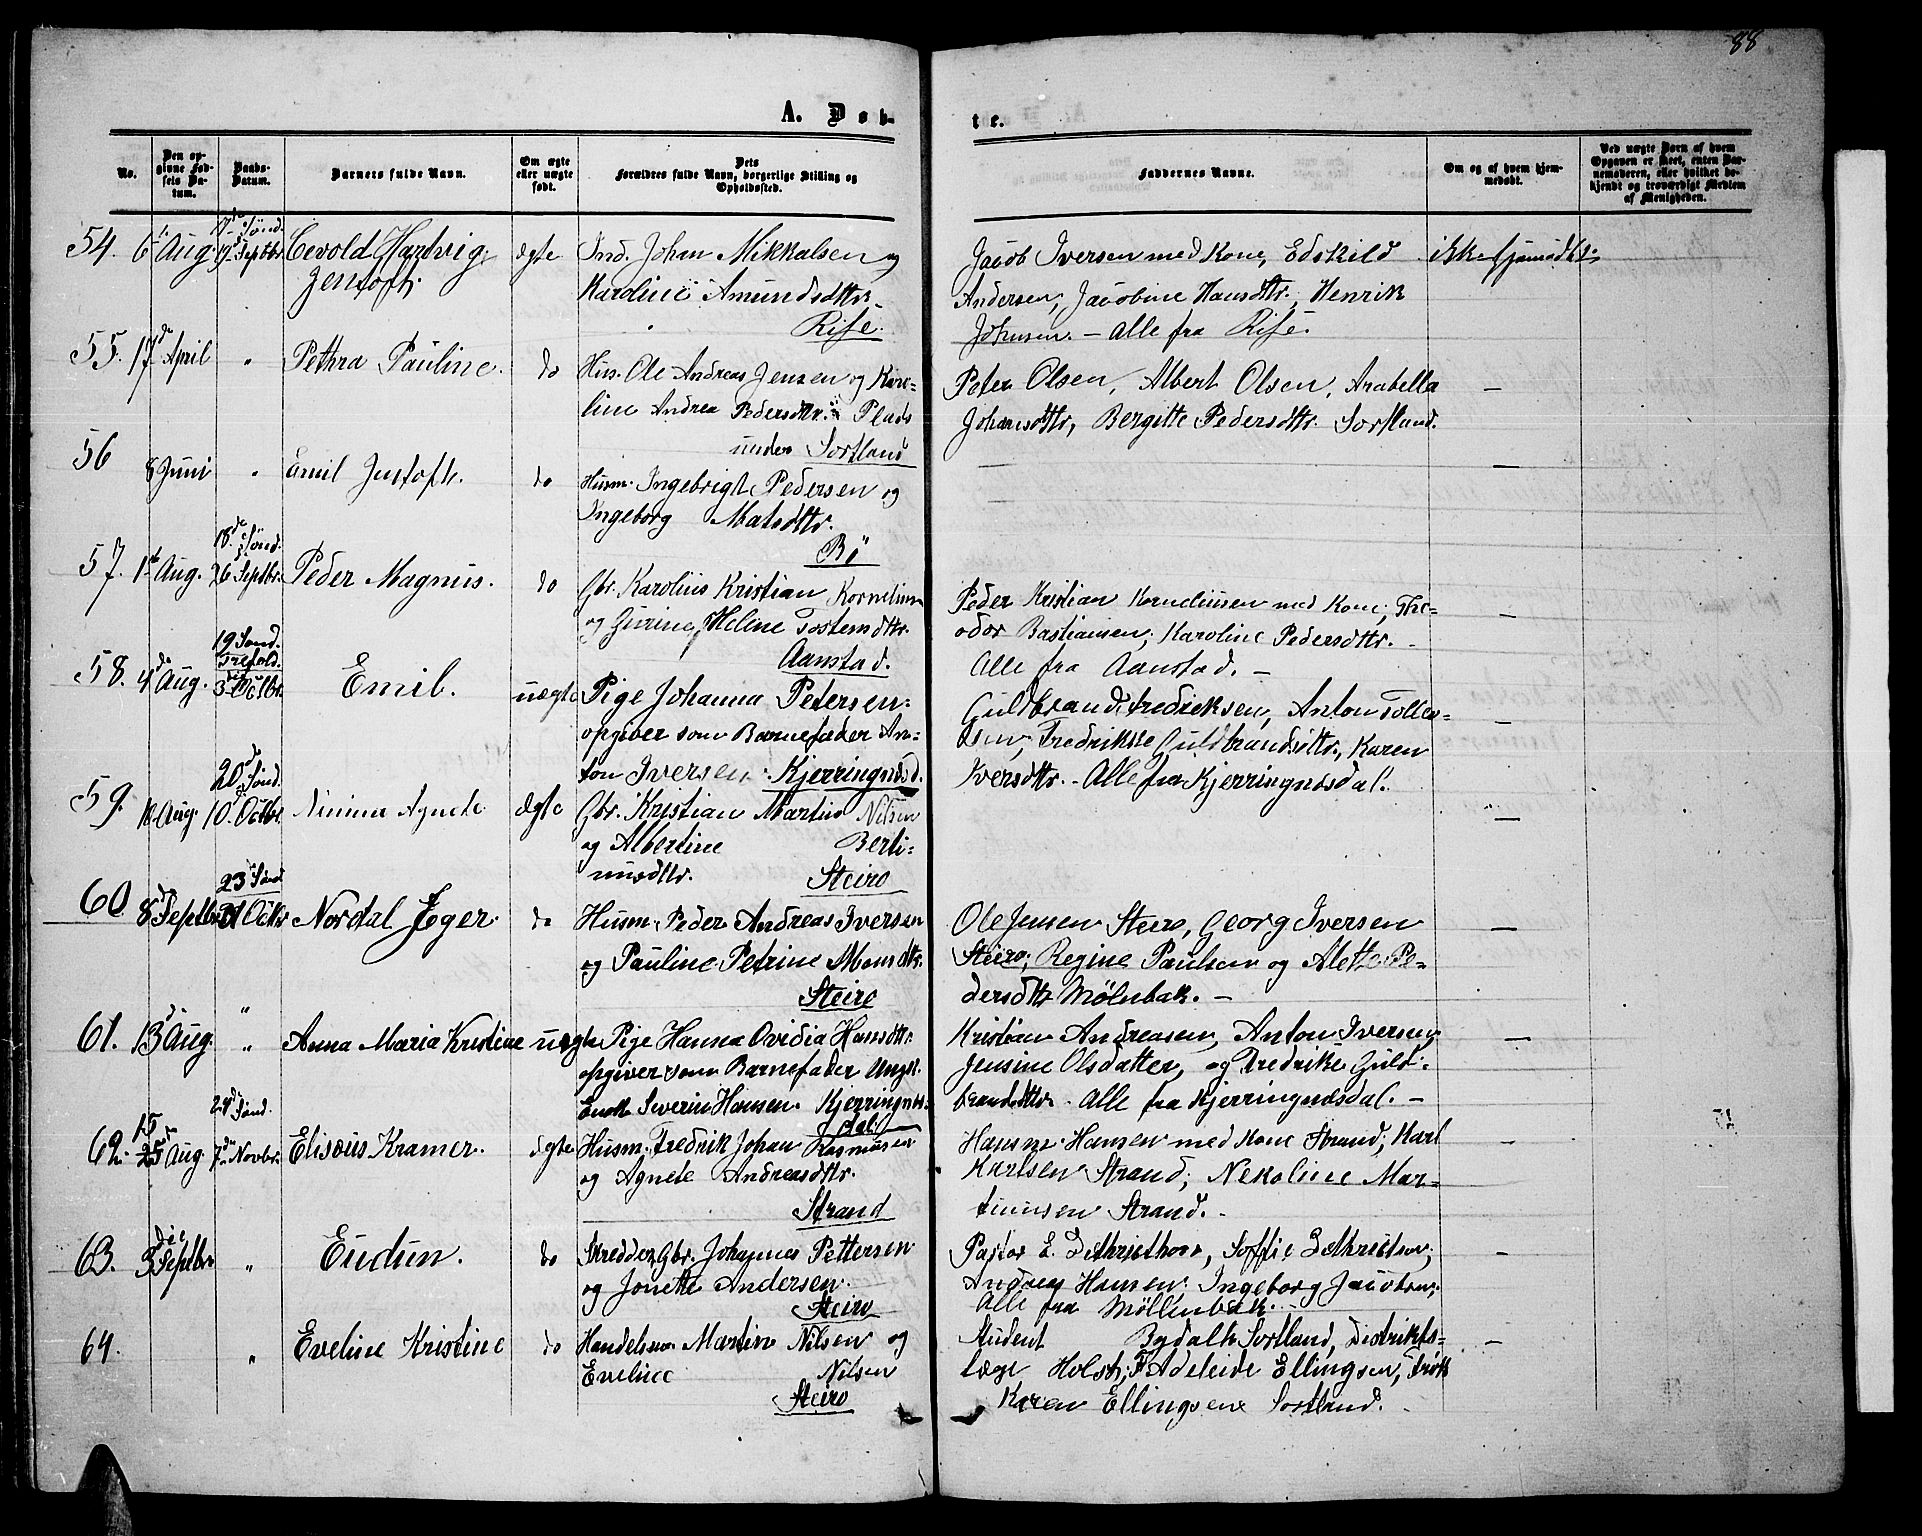 88
A. Døb-
te.
No.
Den opgivne Fødsels Datum.
Daabs-Datum.
Barnets fulde Navn.
Om ægte eller uægte født.
Dets Forældres fulde Navn, borgerlige Stilling og Opholdssted.
Faddernes Navne.
Om og af hvem hjemmedøbt.
Ved uægte Børn af hvem Opgaven er skeet, enten Barnemoderen, eller hvilket bekjendt og troværdigt Medlem af Menigheden.
54. 6 Aug. 17de Sønd. 19 Septbr. Cevold Hartvig Jentoft. ægte Ind. Johan Mikkalsen og
Karoline Amundsdttr.
Rise.
Jacob Iversen med Kone, Edskild
Andersen, Jacobine Hansdttr., Henrik
Johnsen. - Alle fra Rise.
ikke hjemmedøbt.
55. 17de April " Pethra Pauline. do Hus. Ole Andreas Jensen og Karo-
line Andrea Pedersdttr. Plads
under Sortland
Peter Olsen, Albert Olsen, Arabella
Johansdttr, Bergitte Pedersdttr. Sortland.
—
56 8 Juni " Emil Justoft. do Husm. Ingebrigt Pedersen og
Ingeborg Matsdttr.
Bø
—
—
57. 1ste Aug. 18de Sønd. 26 Septbr. Peder Magnus. do Gbr. Karolius Kristian Kornelius
og Gurine Helene Tostensdttr.
Aanstad.
Peder Kristian Korneliussen med Kone, The-
odor Bastiansen, Karoline Pedersdttr. -
Alle fra Aanstad. -
—
58. 4de Aug. 19 Sønd. Trefold. 3die Octbr. Emil. uægte Pige Johanna Petersen
opgiver som Barnefader An-
ton Iversen. Kjerringnæsd.
Guldbrand Fredriksen, Anton Tolle-
sen, Fredrikke Guldbrandsdttr., Karen
Iversdttr. - Alle fra Kjerringnæsdal.
—
59. 18 Aug. 20de Sønd. 10 Octbr. Nimina Agnete ægte Gbr. Kristian Martin Nilsen
og Albertine Berti-
nusdttr. Steiro
—
60. 8de Septbr. 23 Sønd 31 Octbr Nordal Jeger. do Husm. Peder Andreas Iversen
og Pauline Petrine Monsdttr.
Steiro
Ole Jensen Steiro, Georg Iversen
Steiro, Regine Paulsen og Alette Pe-
dersdttr Mølnbak. -
—
61. 13de Aug. " Anna Maria Kristine uægte Pige Hanna Ovidia Hansdttr.
opgiver som Barnefader Ungk.
Enok Severin Hansen. Kjerringnæs-
dal.
Kristian Andreasen, Anton Iversen,
Jensine Olsdatter, og Fredrike Guld-
brandsdttr. Alle fra Kjerringnæsdal. -
—
62. 15 25 Aug. 24de Sønd. 7de Novbr. Elisæus Kramer. ægte Husm. Fredrik Johan Rasmusen
og Agnete Andreasdttr.
Strand
Hans Hansen med Kone Strand, Karl
Karlsen Strand, Nekoline Mar-
tinusen Strand. -
—
63. 3die Septbr. " Eudun. do Skredder Gbr. Johannes Pettersen
og Jonette Andersen.
Steiro
Pastor E. Dethristhorn, Soffie Dethristson,
Andreas Hansen, Ingeborg Jacobsen,
Alle fra Møllenbak.
—
64. " Eveline Kristine do Handelsm. Martin Nilsen og
Eveline Nilsen
Steiro
Student Bydalh Sortland, Distrikts-
læge Holst, Adeleide Ellingsen, Frøk
Karen Ellingsene Sortland.
—